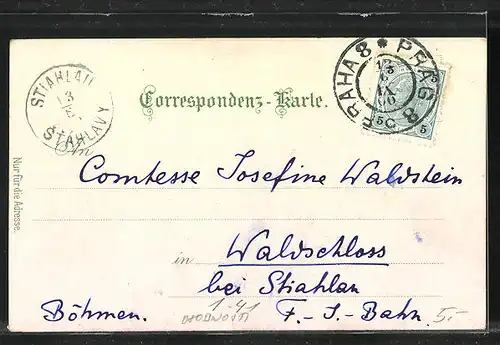 PRAG 8 PRAHA 8
STIAHLAU
ŠTAHLAVY
Correspondenz-Karte.
An
Comtesse Josefine Waldstein
in Waldschloss
bei Stiahlau
Böhmen. F.-J.-Bahn.
5.-
Nur für die Adresse.
5